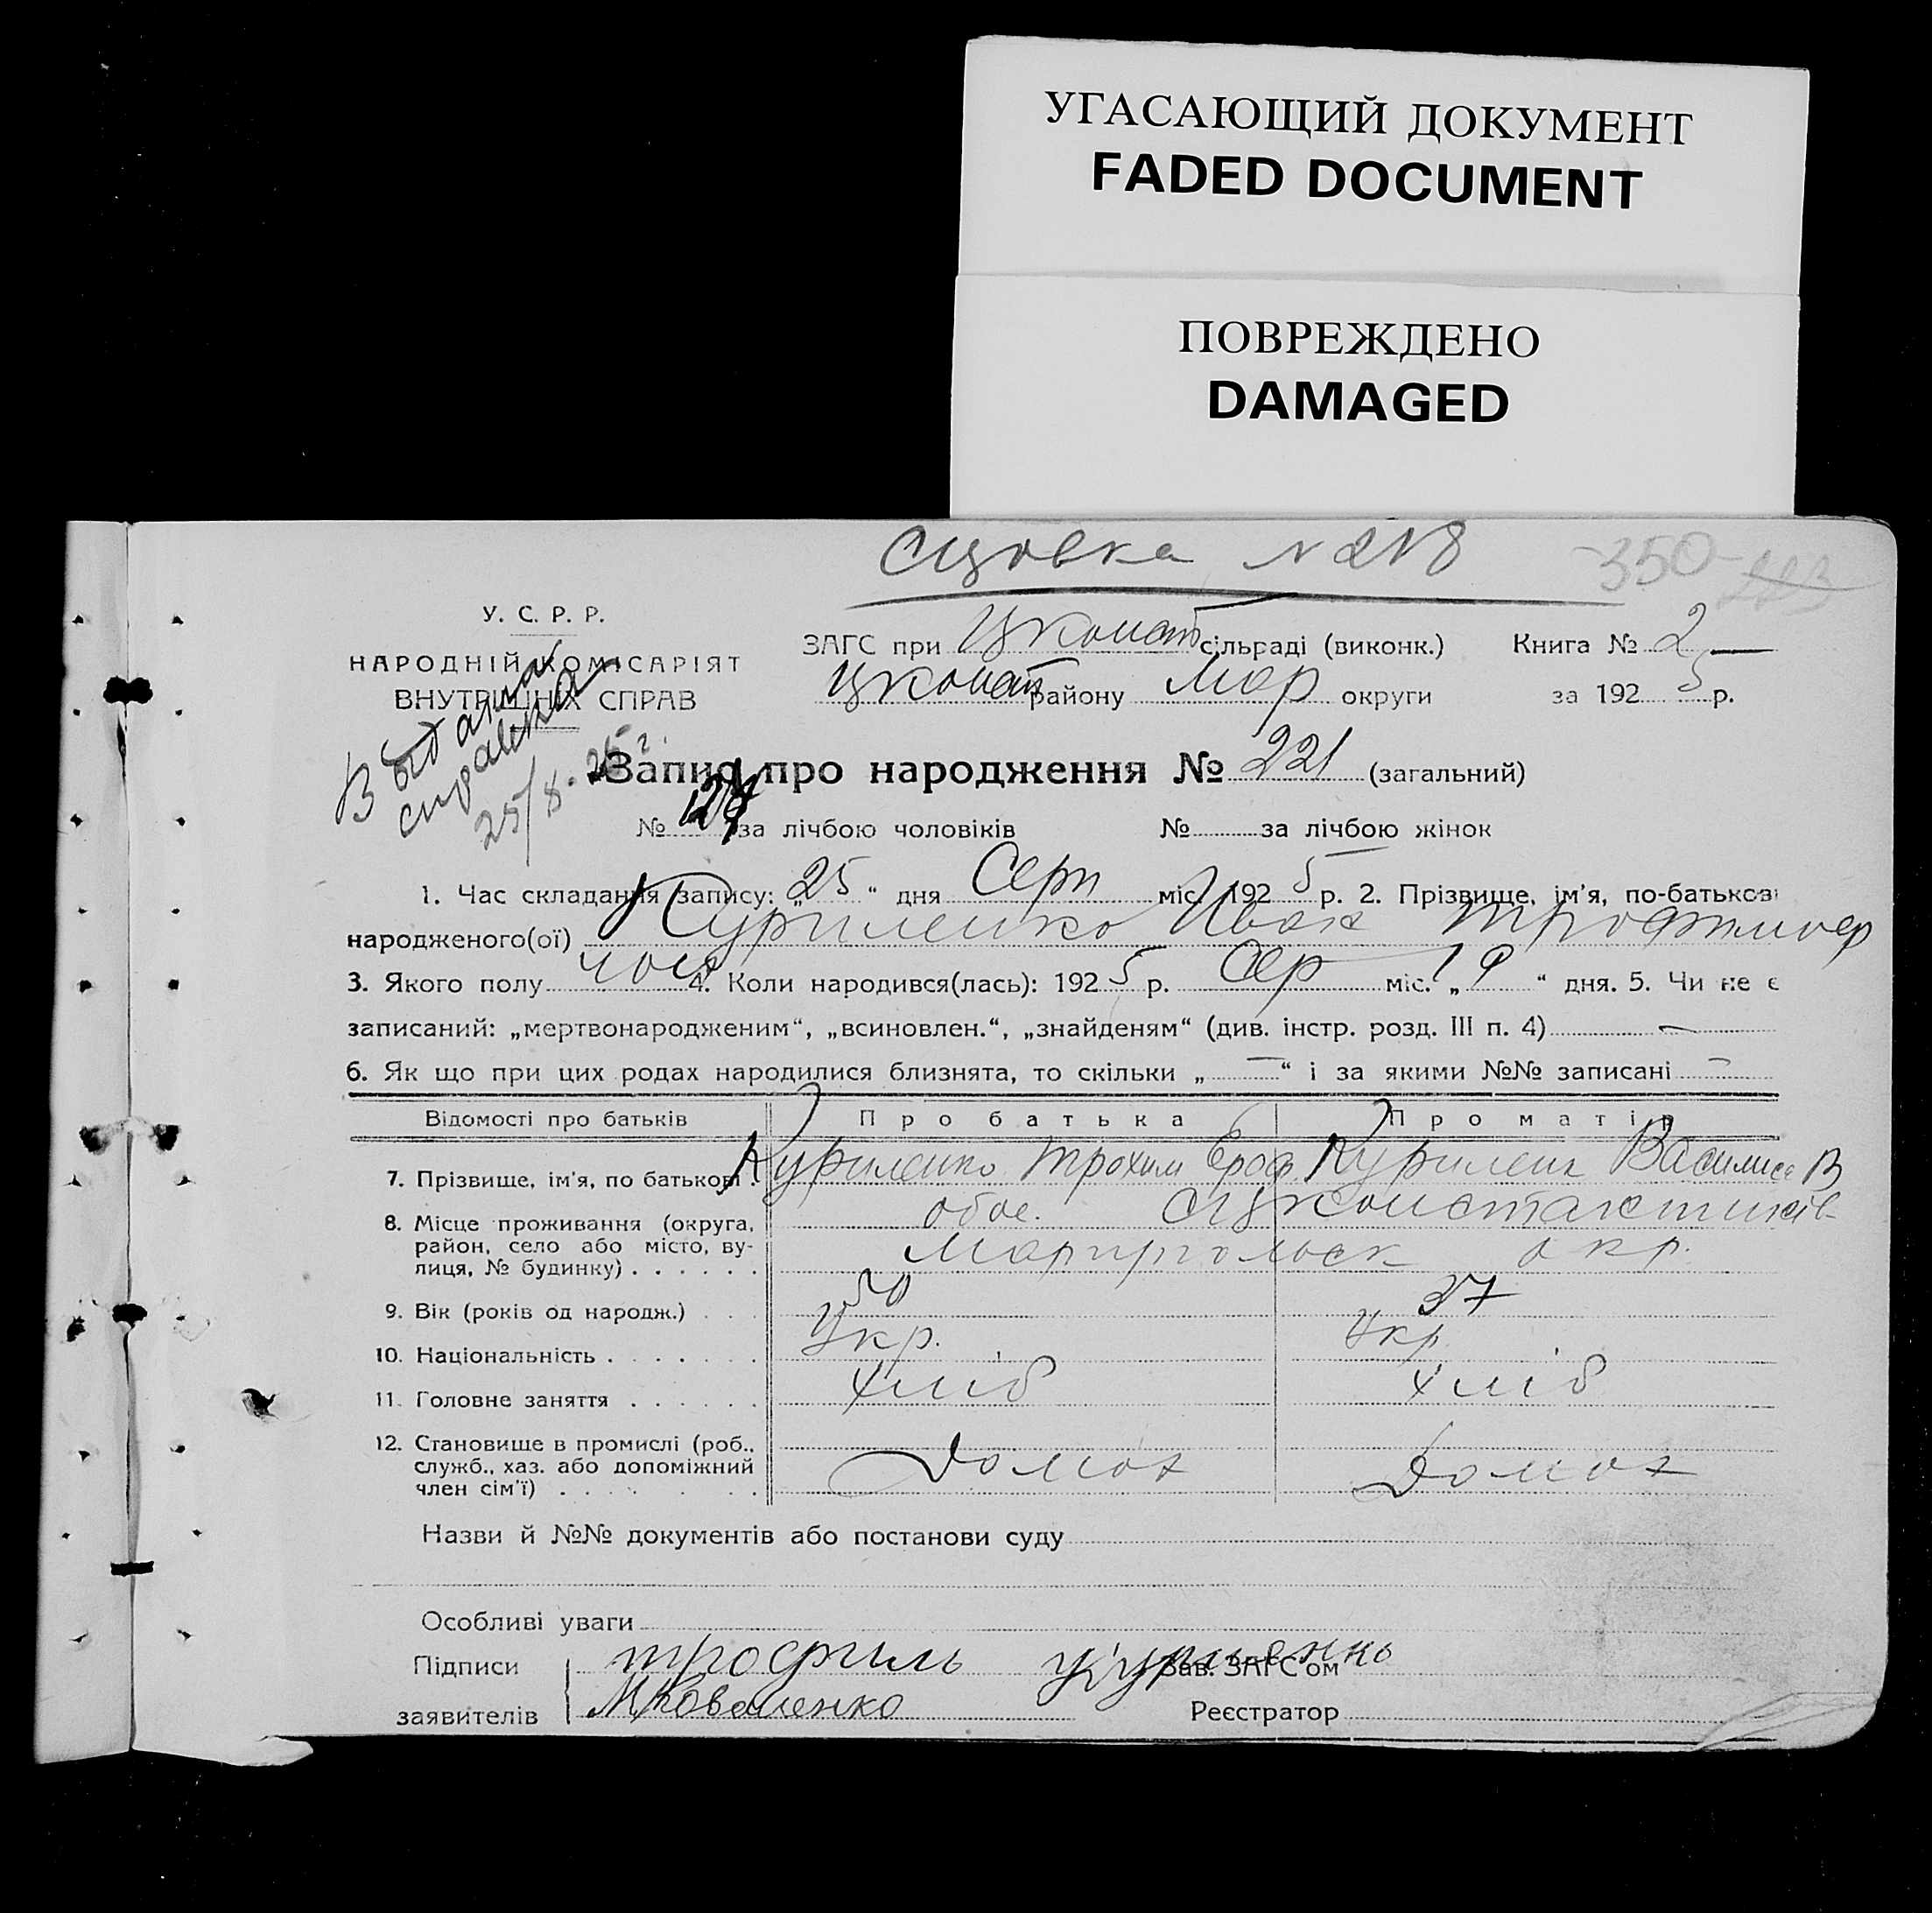 УГАСАЮЩИЙ ДОКУМЕНТ
FADED DOCUMENT
ПОВРЕЖДЕНО
DAMAGED
N 218
-350-
У. С. Р. Р.
НАРОДНІЙ КОМІСАРІЯТ
ВНУТРІШНІХ СПРАВ
ЗАГС при Цконст сільраді (виконк.) Книга № 2
Цконст району Мар округи за 192 5 р.
Выдана
справка
25/8.25 г.
Запис про народження № 221 (загальний)
№ за лічбою чоловіків № за лічбою жінок
1. Час складання запису: „25“ дня Серп міс. 192 5 р. 2. Прізвище, ім'я, по-батькові
народженого(ої) Куриленко Иван Трофимов
3. Якого полу чол 4. Коли народився(лась): 192 5 р. Сер міс. „19“ дня. 5. Чи не є
записаний: „мертвонародженим“, „всиновлен.“, „знайденям“ (див. інстр. розд. III п. 4) —
6. Як що при цих родах народилися близнята, то скільки „—“ і за якими №№ записані —
Відомості про батьків Про батька Про матір
7. Прізвище, ім'я, по батькові . Куриленко Трохим Ероф. Куриленк Василиса В
8. Місце проживання (округа,
район, село або місто, ву-
лиця, № будинку) . . . . . .
обое.
Мариупольск окр.
9. Вік (років од народж.) . . . 50 37
10. Національність . . . . . . . Укр. Укр.
11. Головне заняття . . . . . . Хліб Хліб
12. Становище в промислі (роб.,
служб., хаз. або допоміжний
член сім'ї) . . . . . . .
Домох Домох
Назви й №№ документів або постанови суду
Особливі уваги
Підписи Трофиль Куриленко Зав. ЗАГС'ом
заявителів М Коваленко Реєстратор